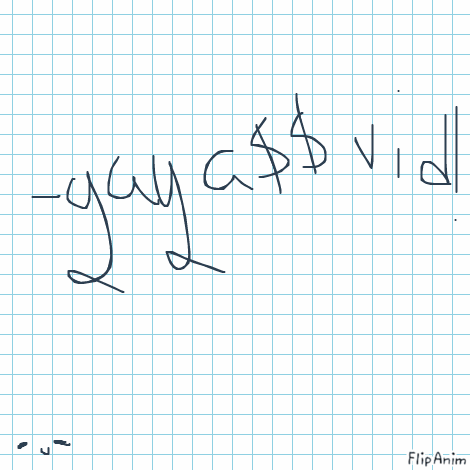 -gay a$$ vid!
FlipAnim